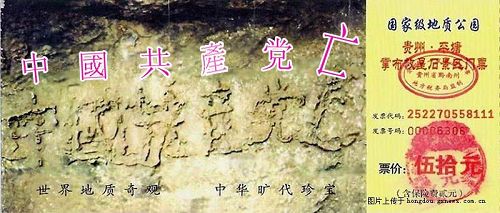 中國共產党亡
世界地质奇观 中华旷代珍宝
国家级地质公园
贵州·平塘
掌布救星石景区门票
贵州省黔南州
地方税务局监制
发票代码:252270558111
发票号码:00006306
票价:伍拾元
(含保险费贰元)
图片上传于:hongdou.gxnews.com.cn